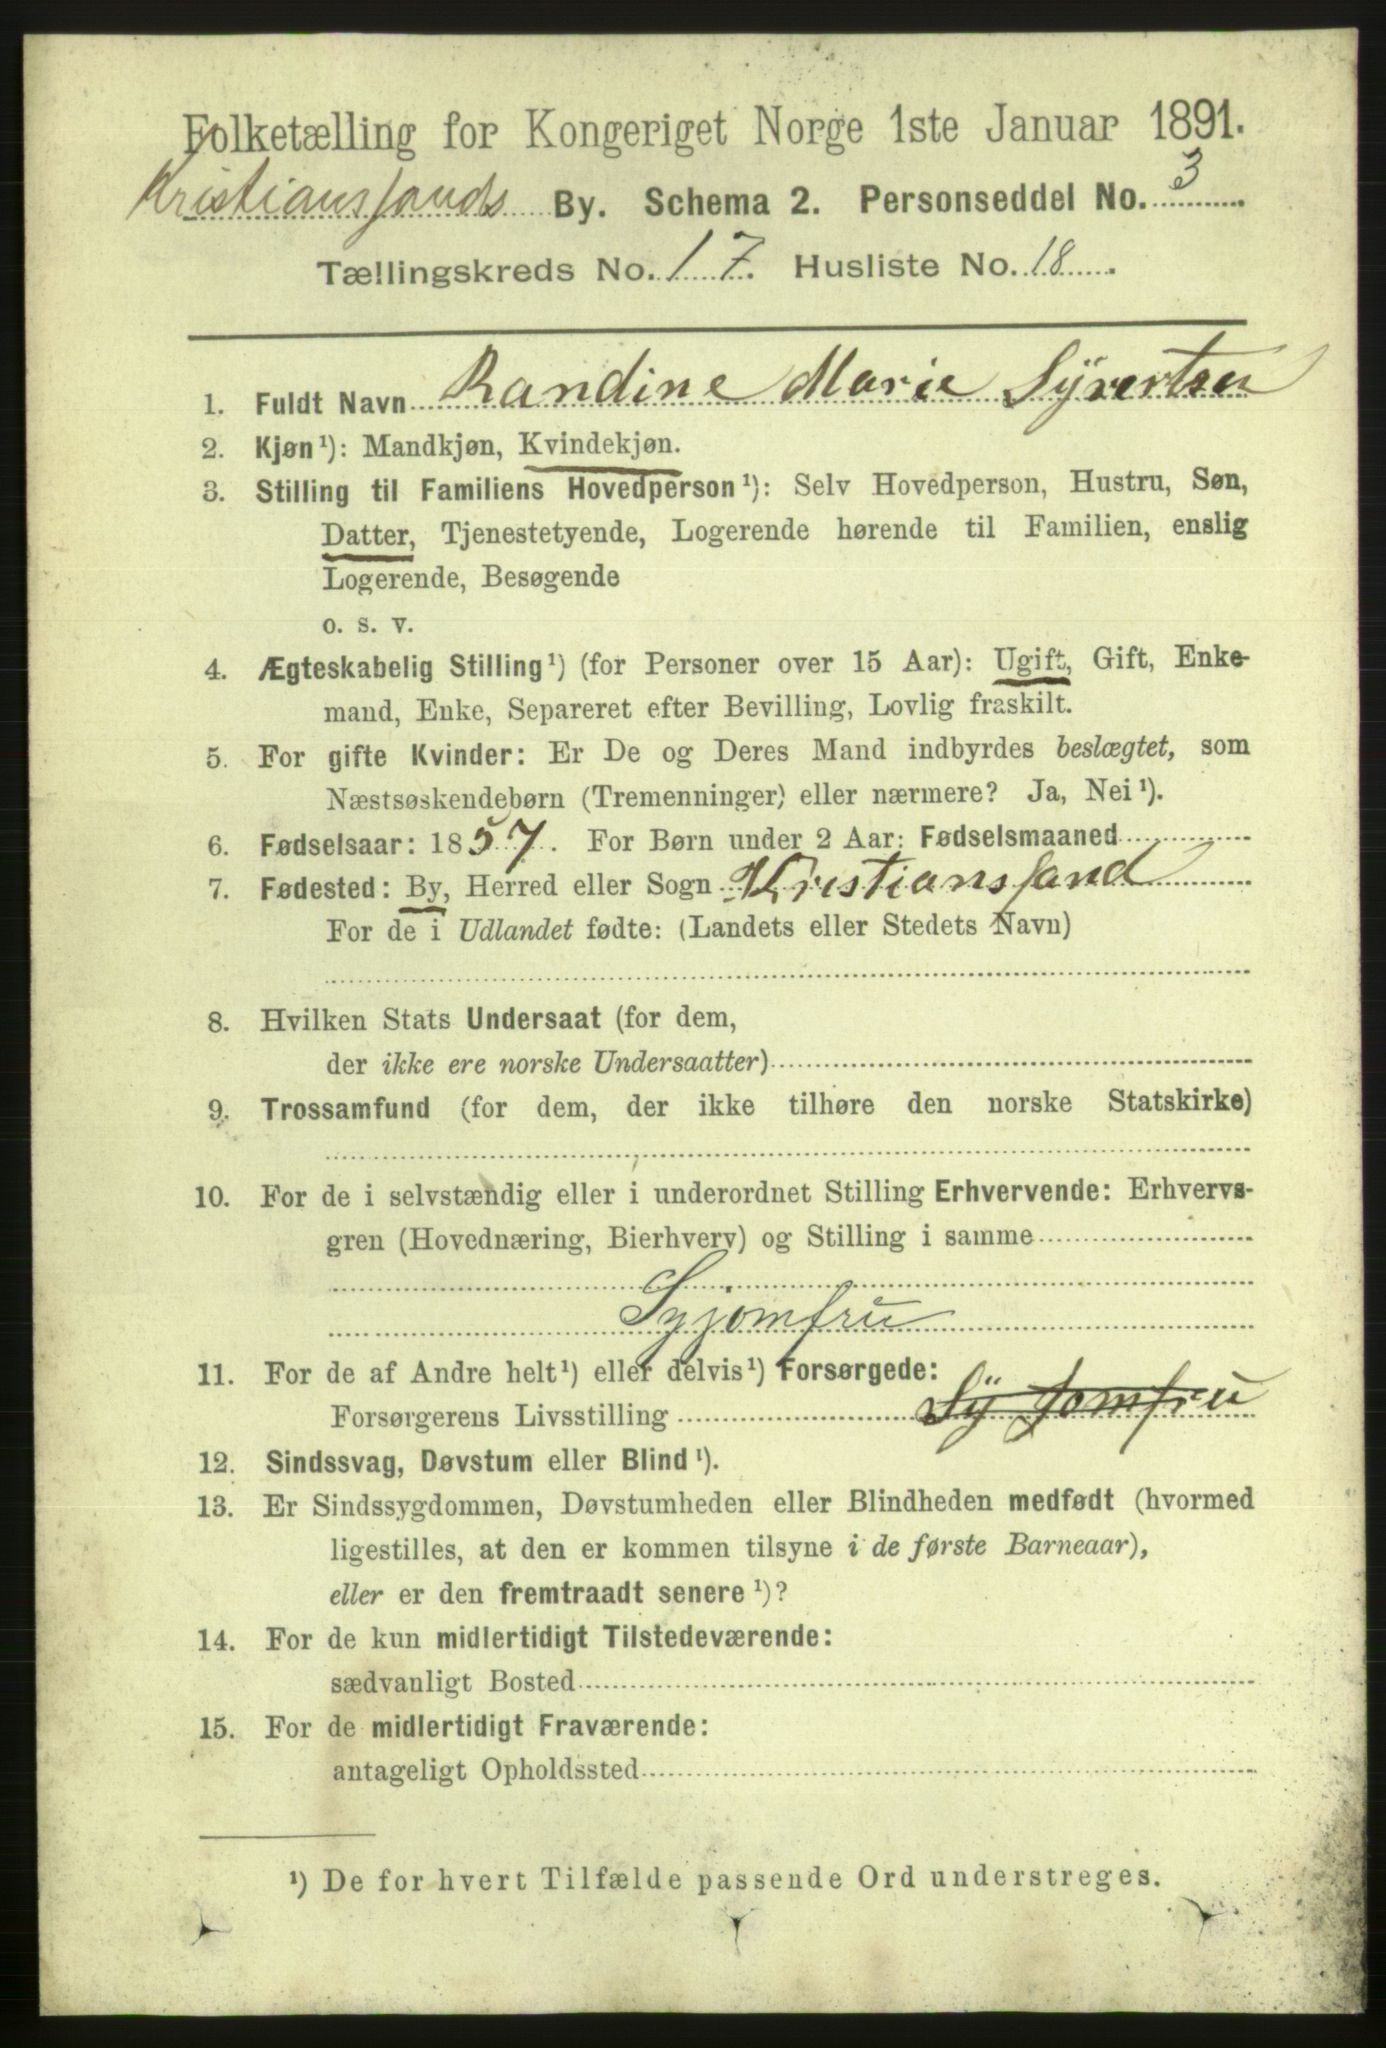 Folketælling for Kongeriget Norge 1ste Januar 1891.
Kristianssands By. Schema 2. Personseddel No. 3
Tællingskreds No. 17. Husliste No. 18.
1. Fuldt Navn Randine Marie Syvertsen
2. Kjøn¹): Mandkjøn, Kvindekjøn.
3. Stilling til Familiens Hovedperson¹): Selv Hovedperson, Hustru, Søn,
Datter, Tjenestetyende, Logerende hørende til Familien, enslig
Logerende, Besøgende
o. s. v.
4. Ægteskabelig Stilling¹) (for Personer over 15 Aar): Ugift, Gift, Enke-
mand, Enke, Separeret efter Bevilling, Lovlig fraskilt.
5. For gifte Kvinder: Er De og Deres Mand indbyrdes beslægtet, som
Næstsøskendebørn (Tremenninger) eller nærmere? Ja, Nei¹).
6. Fødselsaar: 1857. For Børn under 2 Aar: Fødselsmaaned
7. Fødested: By, Herred eller Sogn Kristianssand
For de i Udlandet fødte: (Landets eller Stedets Navn)
8. Hvilken Stats Undersaat (for dem,
der ikke ere norske Undersaatter)
9. Trossamfund (for dem, der ikke tilhøre den norske Statskirke)
10. For de i selvstændig eller i underordnet Stilling Erhvervende: Erhvervs-
gren (Hovednæring, Bierhverv) og Stilling i samme
Syjomfru
11. For de af Andre helt¹) eller delvis¹) Forsørgede:
Forsørgerens Livsstilling Sÿ Jomfru
12. Sindssvag, Døvstum eller Blind¹).
13. Er Sindssygdommen, Døvstumheden eller Blindheden medfødt (hvormed
ligestilles, at den er kommen tilsyne i de første Barneaar),
eller er den fremtraadt senere¹)?
14. For de kun midlertidigt Tilstedeværende:
sædvanligt Bosted
15. For de midlertidigt Fraværende:
antageligt Opholdssted
¹) De for hvert Tilfælde passende Ord understreges.